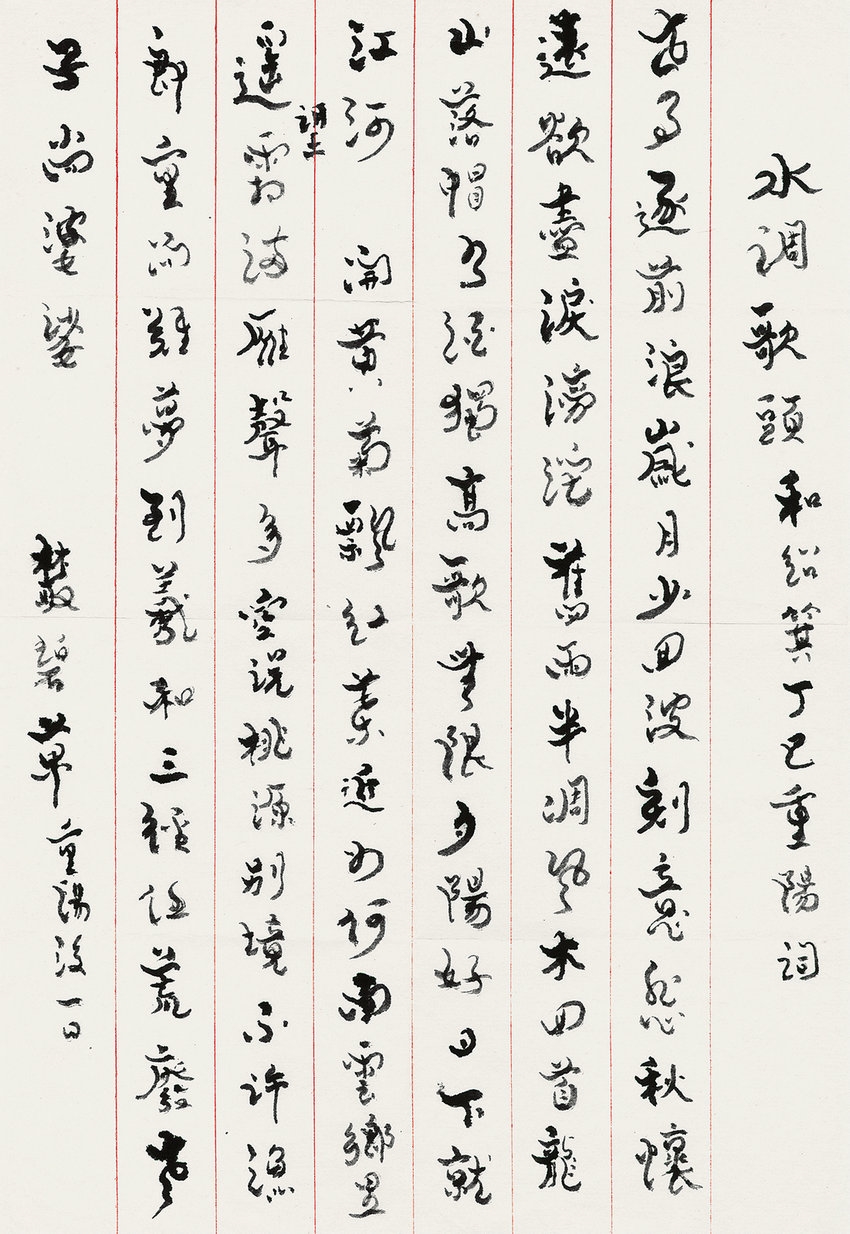 水調歌頭 和紹箕丁巳重陽詞
古月逐前浪歲月少回波刻意愁秋懷
遠欲盡淚滂沱舊雨半凋風木回首龍
山落帽有酒獨高歌無限夕陽好日下就
江河 開黃菊飄紅葉近如何南雲鄉思
遙望霜滿雁聲多空說桃源別境不許漁
郎重問難夢到羲和三徑任荒廢老
子尚婆娑
叢碧草 重陽後一日